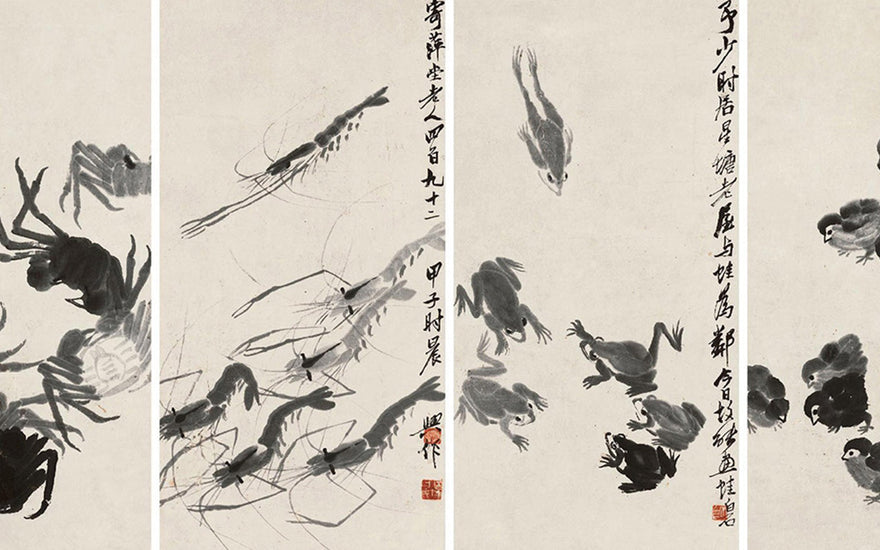 予少时居星塘老屋与蛙為鄰今日故能畫蛙白石
寄萍堂老人四百九十二甲子时晨